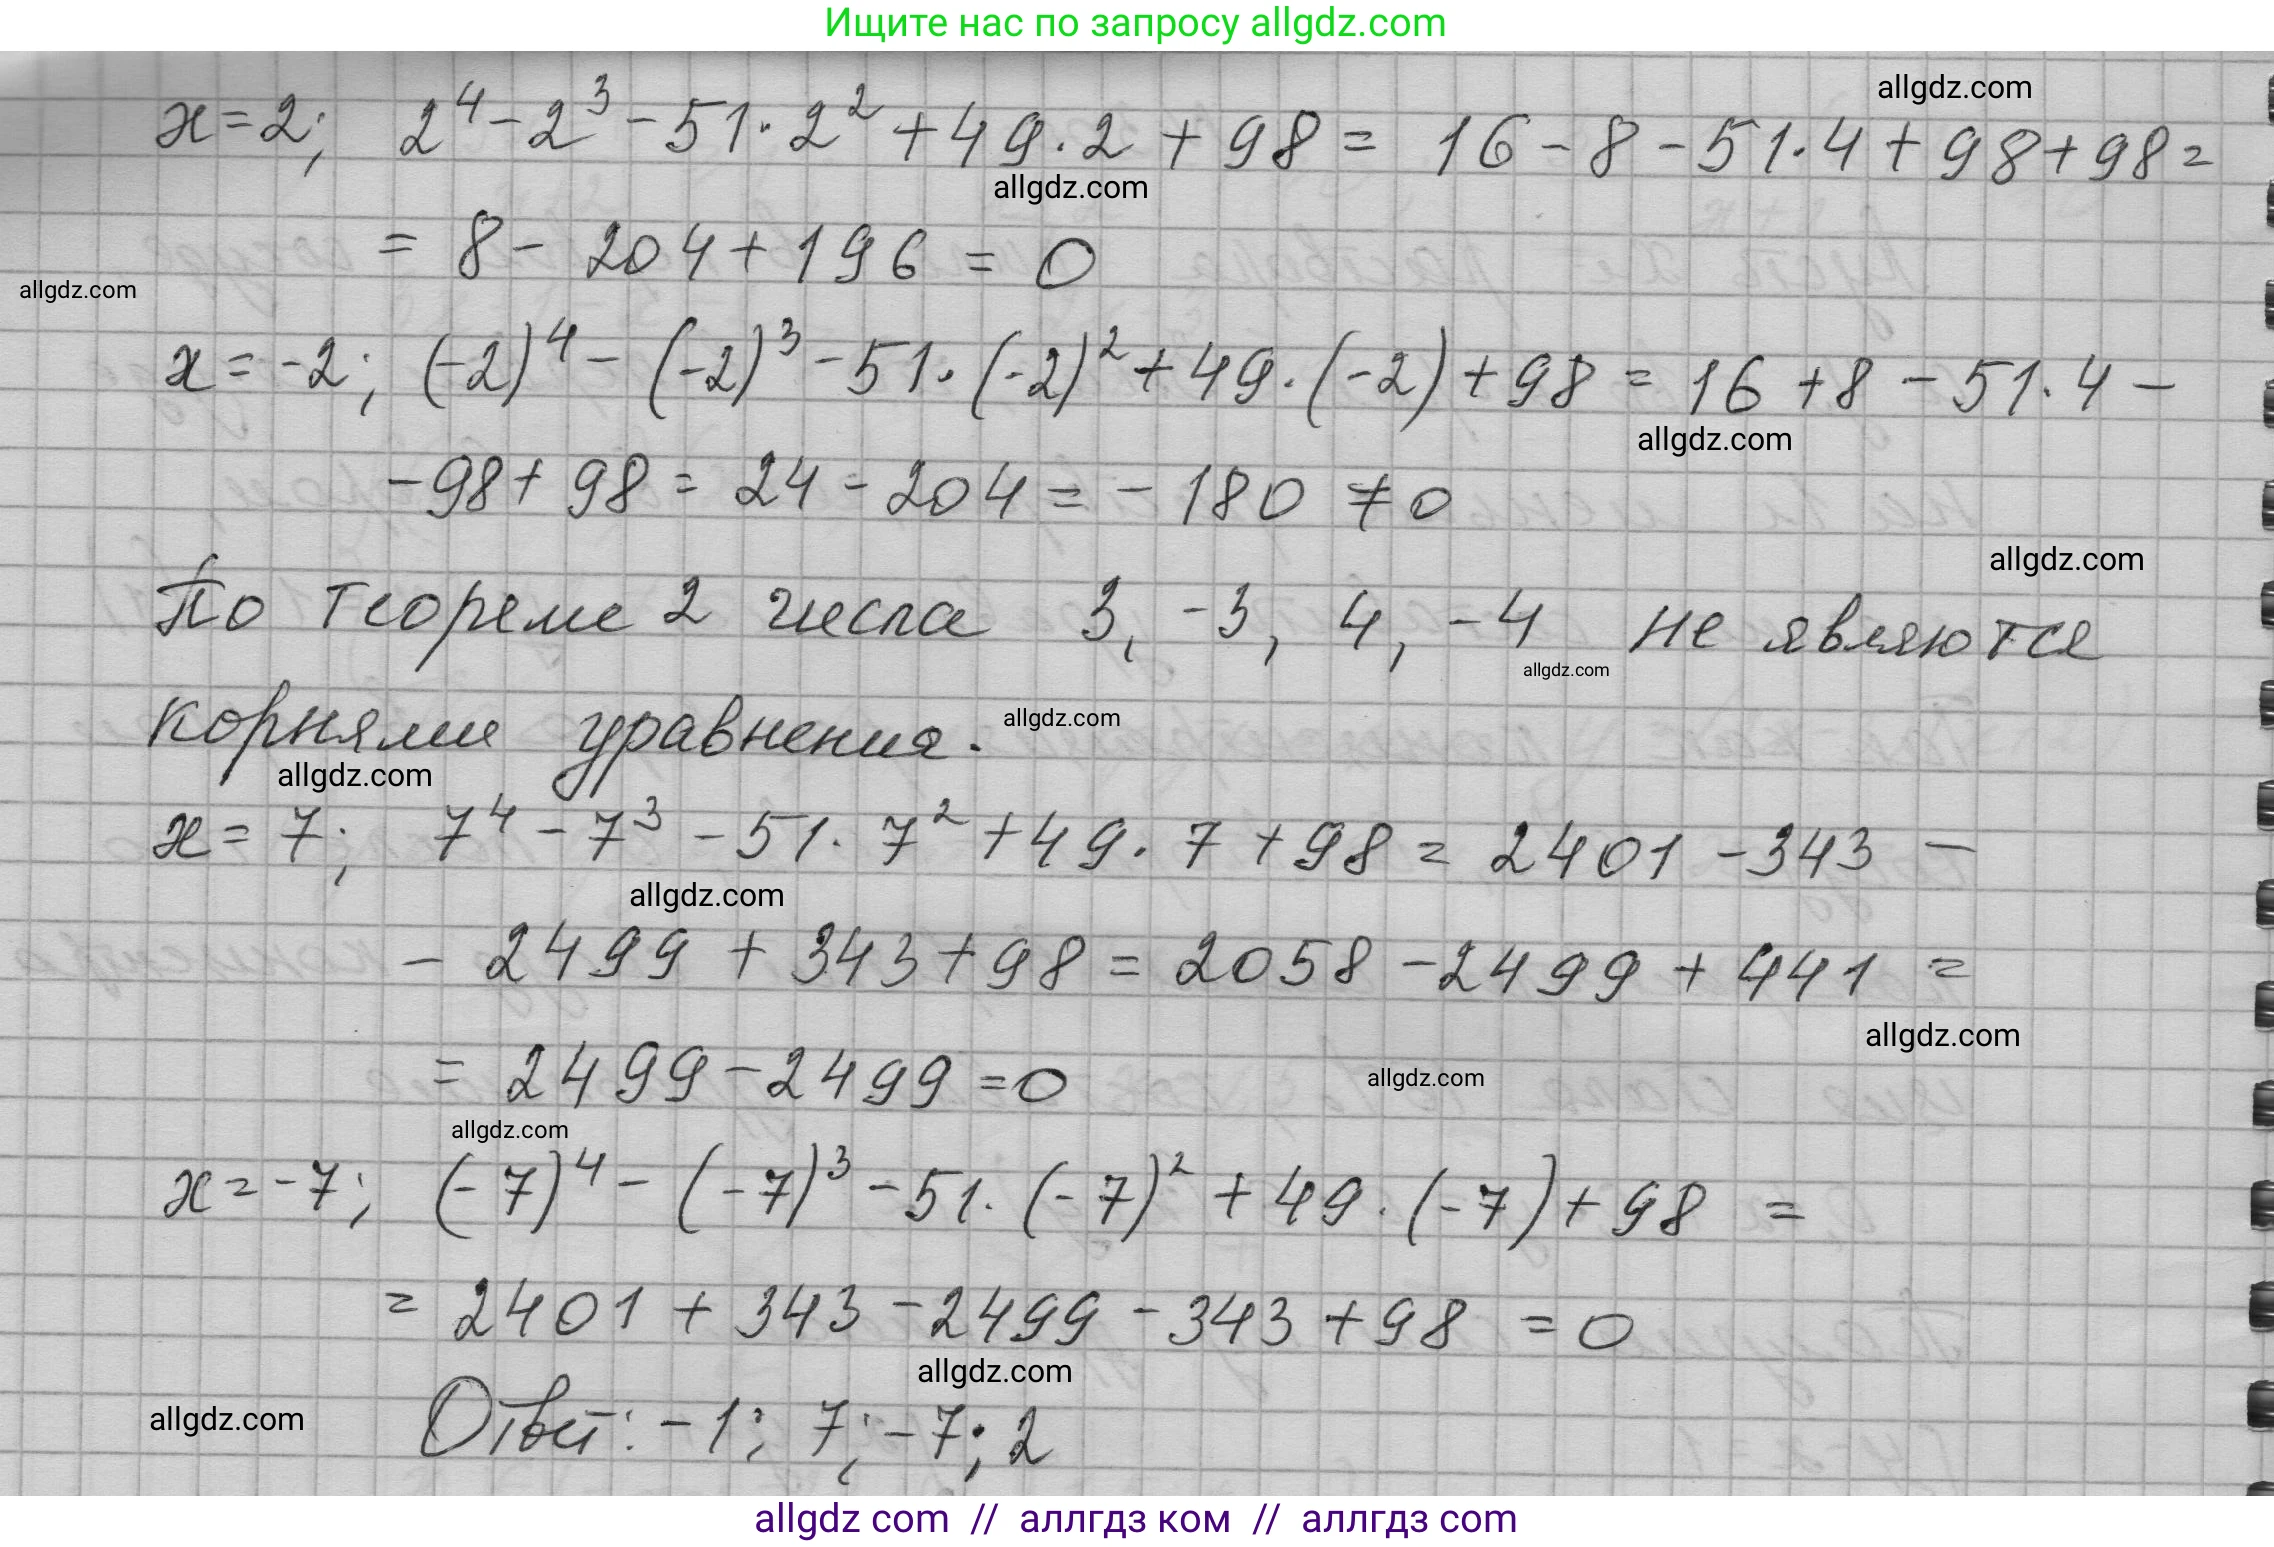 Ищите нас по запросу allgdz.com
allgdz.com
x=2; 2⁴-2³-51·2²+49·2+98= 16-8-51·4+98+98=
allgdz.com
=8-204+196=0
allgdz.com
x=-2; (-2)⁴-(-2)³-51·(-2)²+49·(-2)+98=16+8-51·4-
allgdz.com
-98+98=24-204=-180≠0
allgdz.com
По теореме 2 числа 3, -3, 4, -4 не являются
allgdz.com
корнями уравнения.
allgdz.com
allgdz.com
x=7; 7⁴-7³-51·7²+49·7+98=2401-343-
allgdz.com
-2499+343+98=2058-2499+441=
allgdz.com
=2499-2499=0
allgdz.com
allgdz.com
x=-7; (-7)⁴-(-7)³-51·(-7)²+49·(-7)+98=
=2401+343-2499-343+98=0
allgdz.com
allgdz.com
Ответ: -1; 7; -7; 2
allgdz com // аллгдз ком // аллгдз com